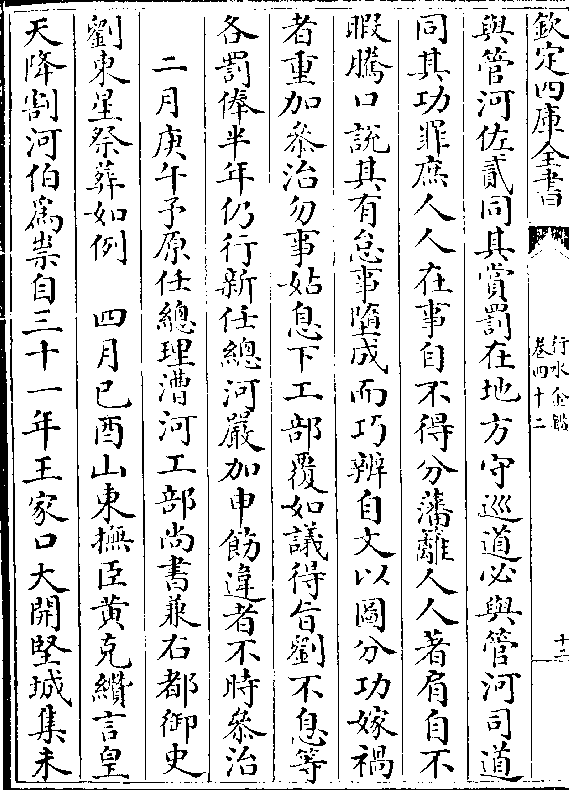 欽定四庫全書
行水金鑑
卷四十二
十二
與管河佐貳同其賞罰在地方守巡道必與管河司道
同其功罪庶人人在事自不得分藩籬人人著肩自不
暇騰口說其有怠事隳成而巧辨自文以圖分功嫁禍
者重加叅治勿事姑息下工部覆如議得旨劉不息等
各罰俸半年仍行新任總河嚴加申飭違者不時叅治
二月庚午予原任總理漕河工部尚書兼右都御史
劉東星祭葬如例　四月己酉山東撫臣黃克纘言皇
天降割河伯為祟自三十一年王家口大開堅城集未